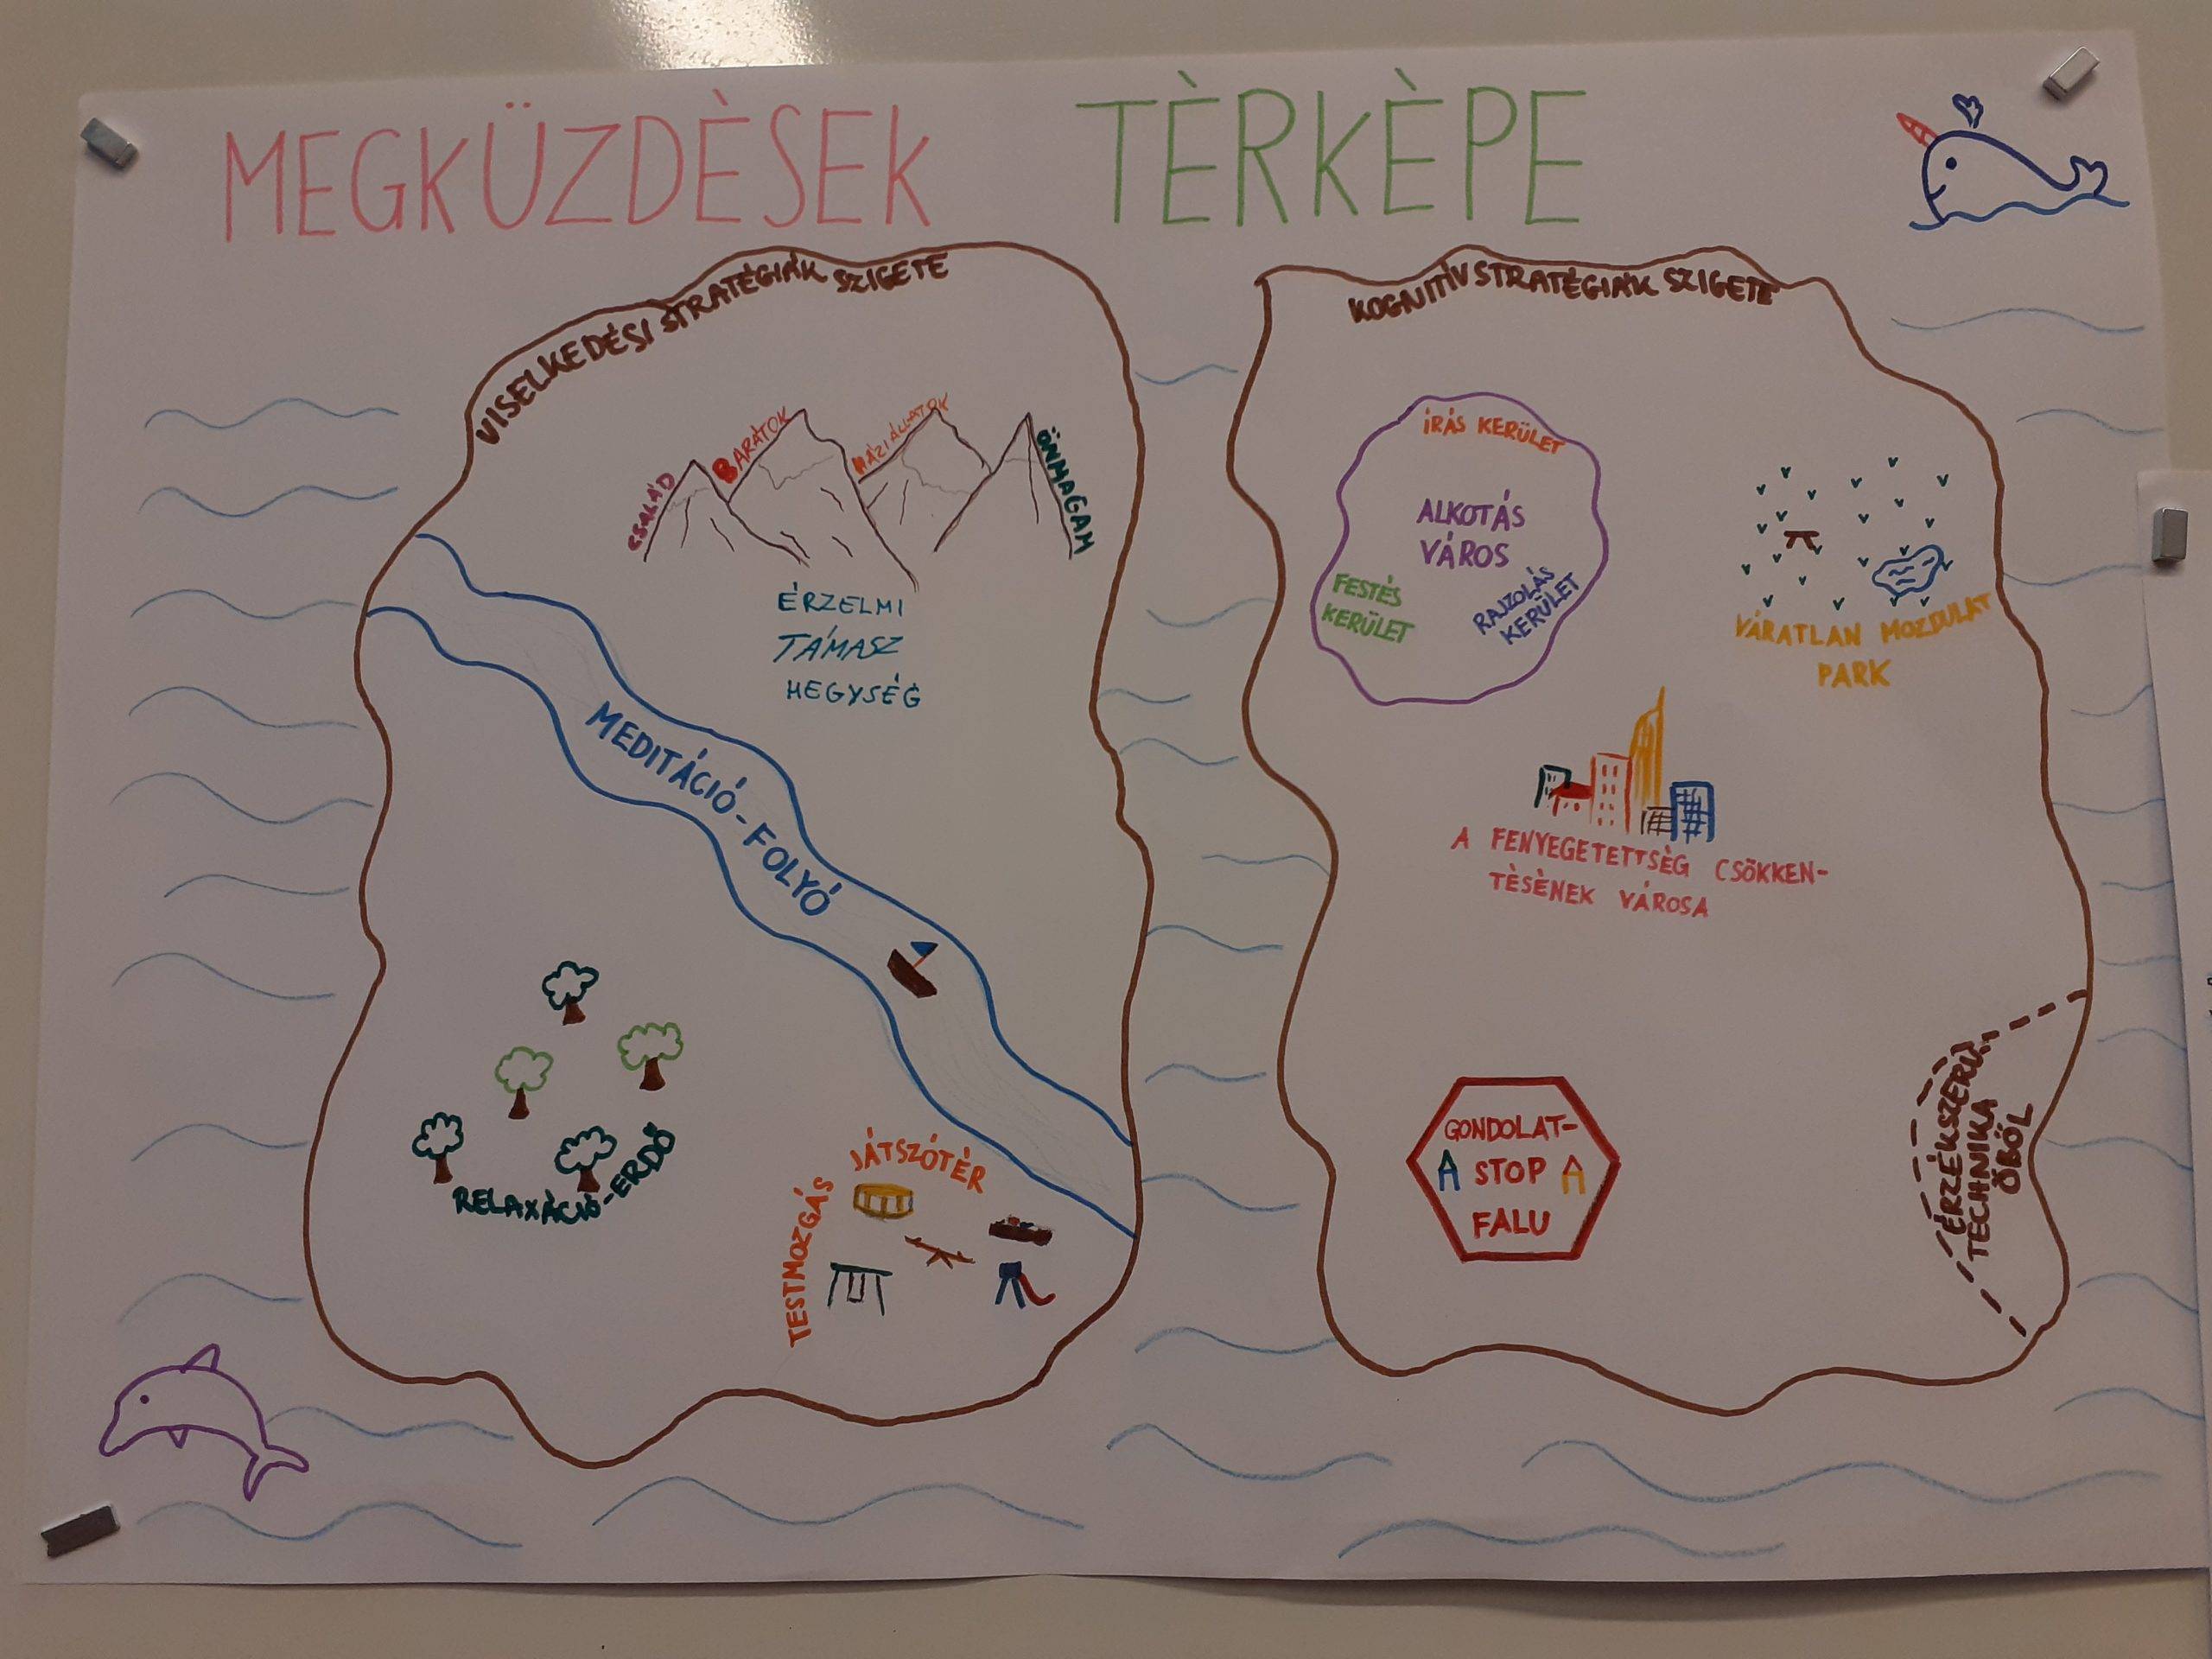 MEGKÜZDÈSEK TÈRKÈPE
VISELKEDÉSI STRATÉGIÁK SZIGETE
CSALÁD
BARÁTOK
HÁZIÁLLATOK
ÖNMAGAM
ÉRZELMI
TÁMASZ
HEGYSÉG
MEDITÁCIÓ-FOLYÓ
RELAXÁCIÓ-ERDŐ
TESTMOZGÁS
JÁTSZÓTÉR
KOGNITÍV STRATÉGIÁK SZIGETE
ÍRÁS KERÜLET
ALKOTÁS
VÁROS
FESTÉS
KERÜLET
RAJZOLÁS
KERÜLET
VÁRATLAN MOZDULAT
PARK
A FENYEGETETTSÈG CSÖKKEN-
TÈSÈNEK VÁROSA
GONDOLAT-
STOP
FALU
ÉRZÉKSZERVI
TECHNIKA
ÖBÖL